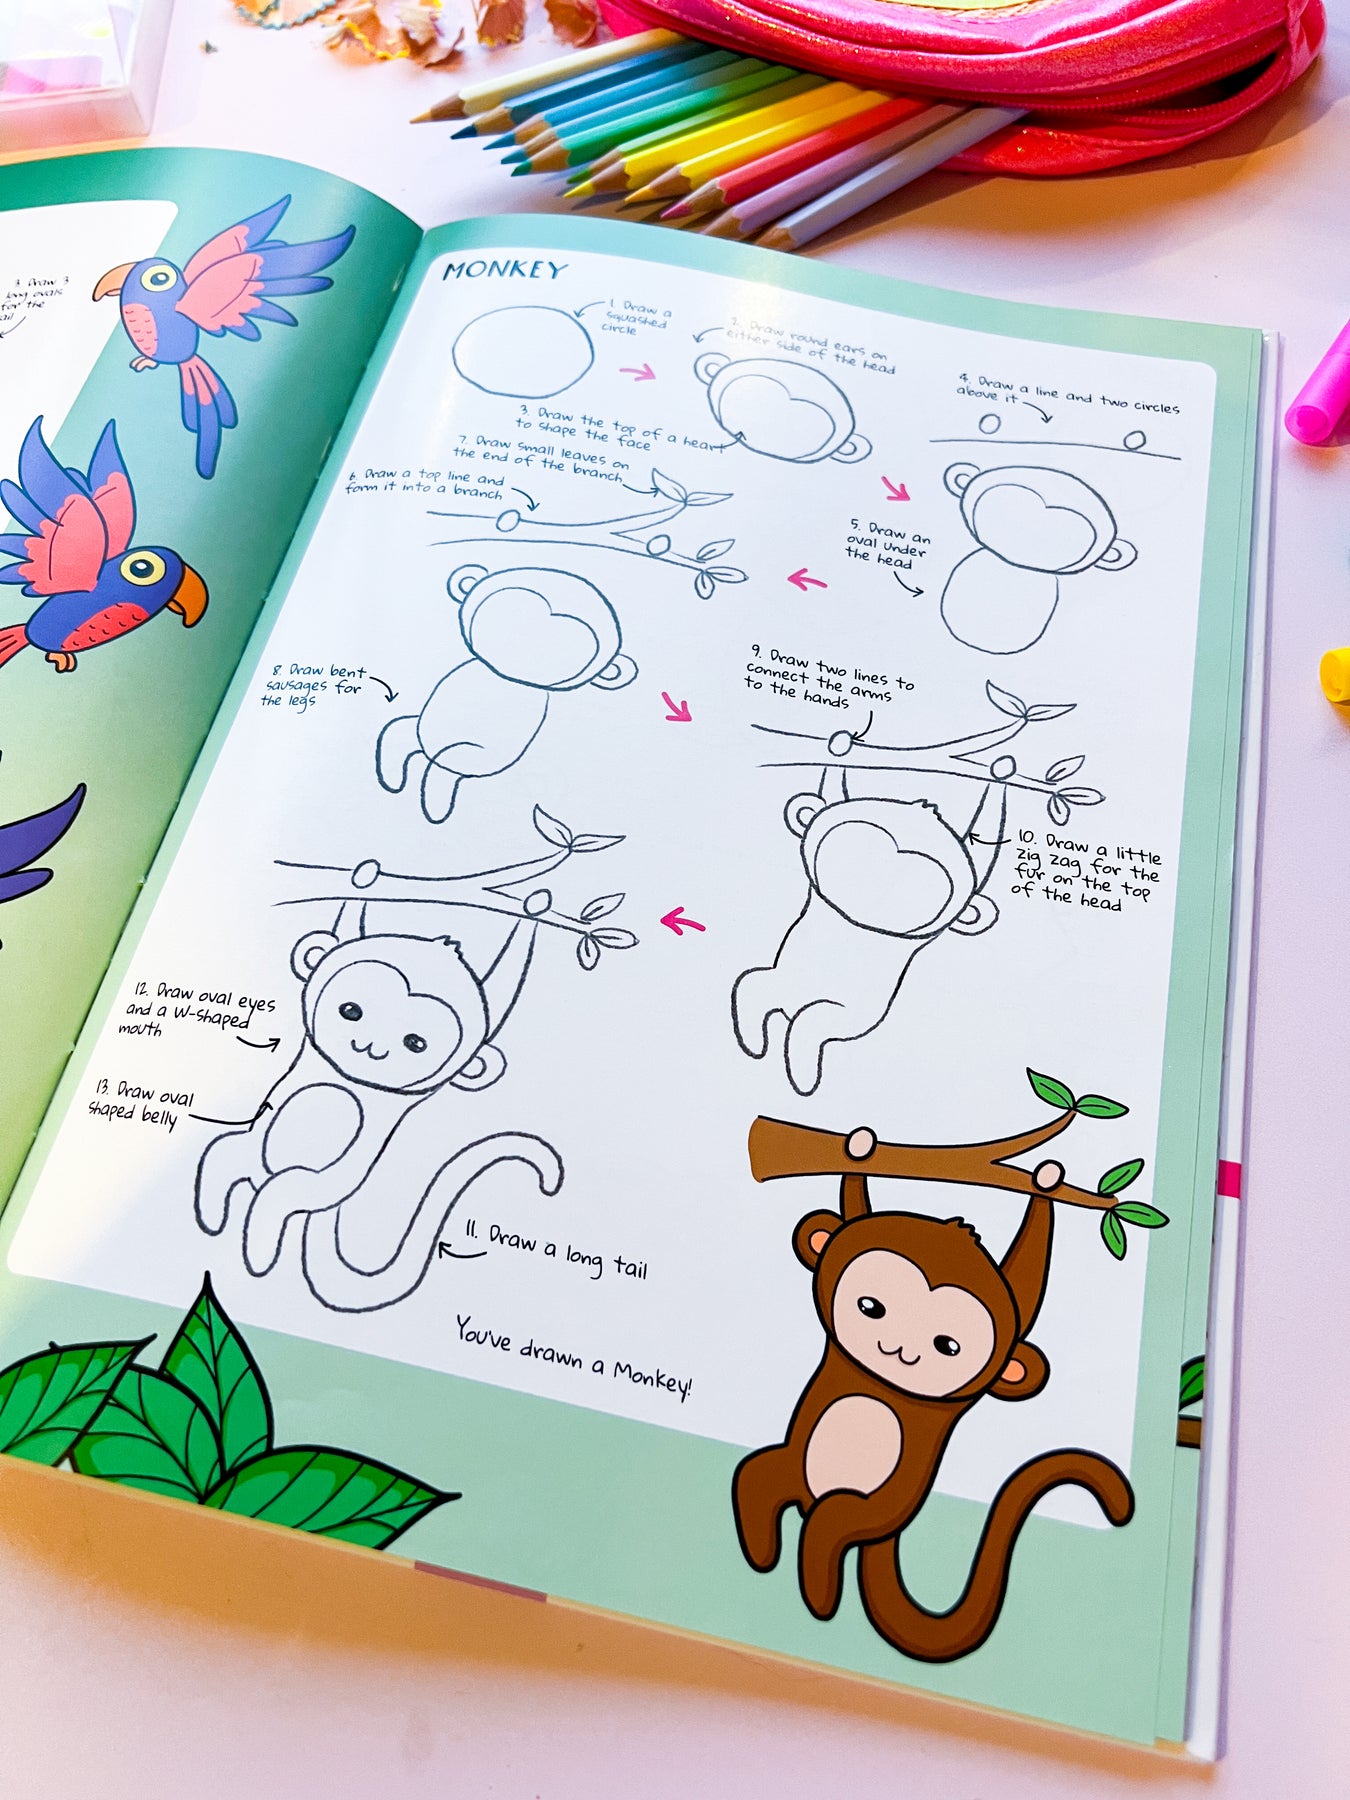 3. Draw 3
long ovals
for the
MONKEY
1. Draw a
squashed
circle
2. Draw round ears on
either side of the head
3. Draw the top of a heart
to shape the face
4. Draw a line and two circles
above it
5. Draw an
oval under
the head
6. Draw a top line and
form it into a branch
7. Draw small leaves on
the end of the branch
8. Draw bent
sausages for
the legs
9. Draw two lines to
connect the arms
to the hands
10. Draw a little
zig zag for the
fur on the top
of the head
11. Draw a long tail
12. Draw oval eyes
and a W-shaped
mouth
13. Draw oval
shaped belly
You've drawn a Monkey!